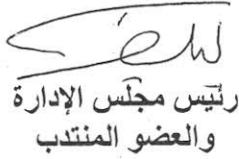 رئيس مجلس الإدارة
والعضو المنتدب